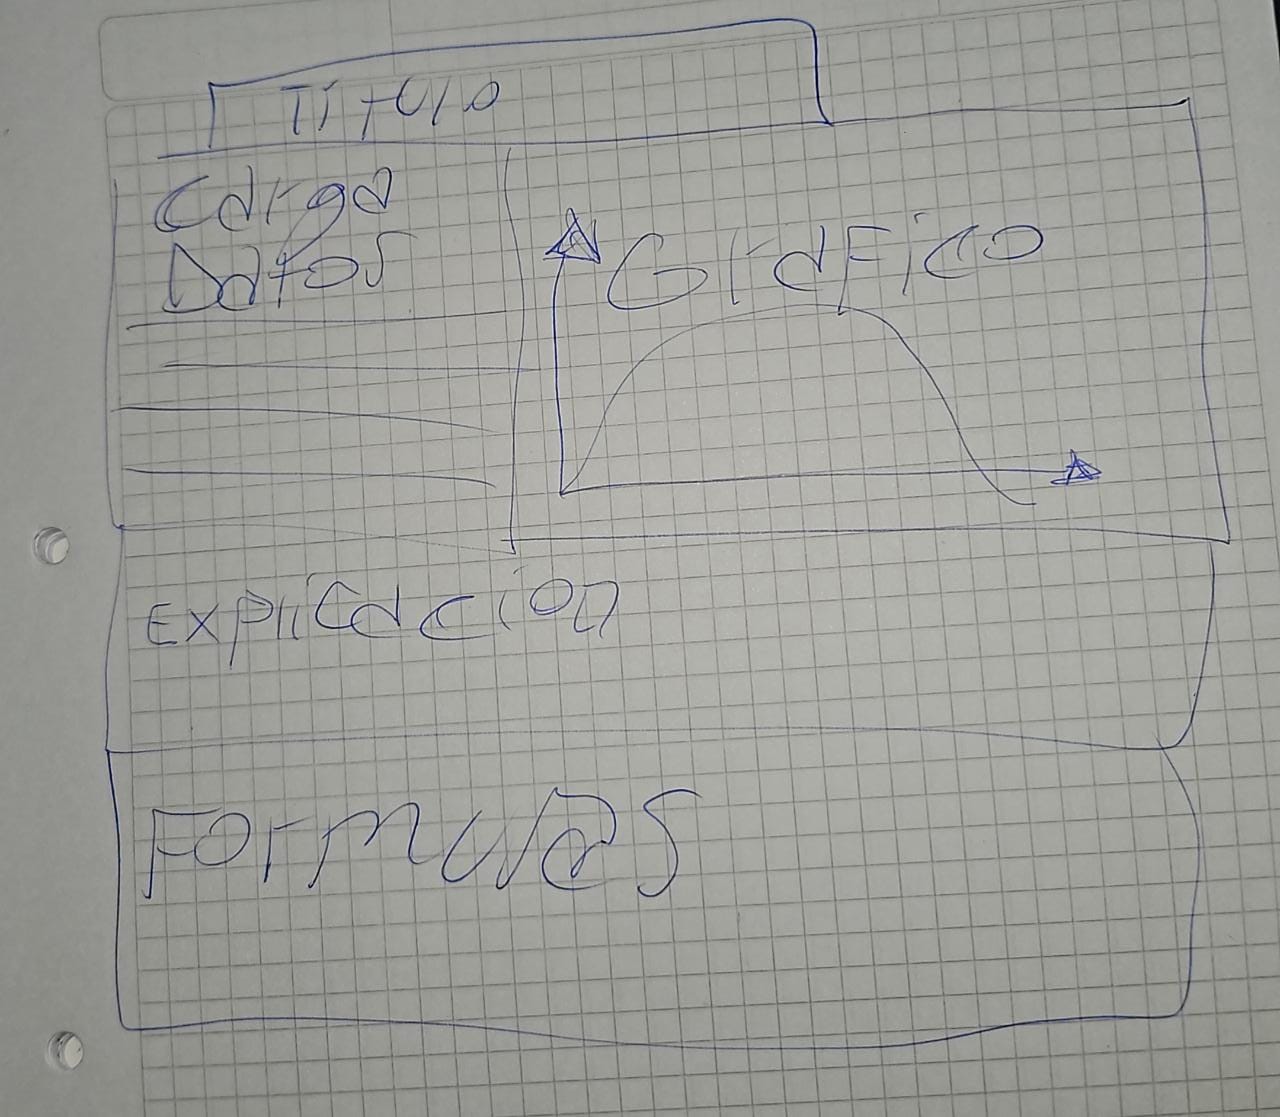 Titulo
Carga
Datos
Grafico
Explicacion
Formulas